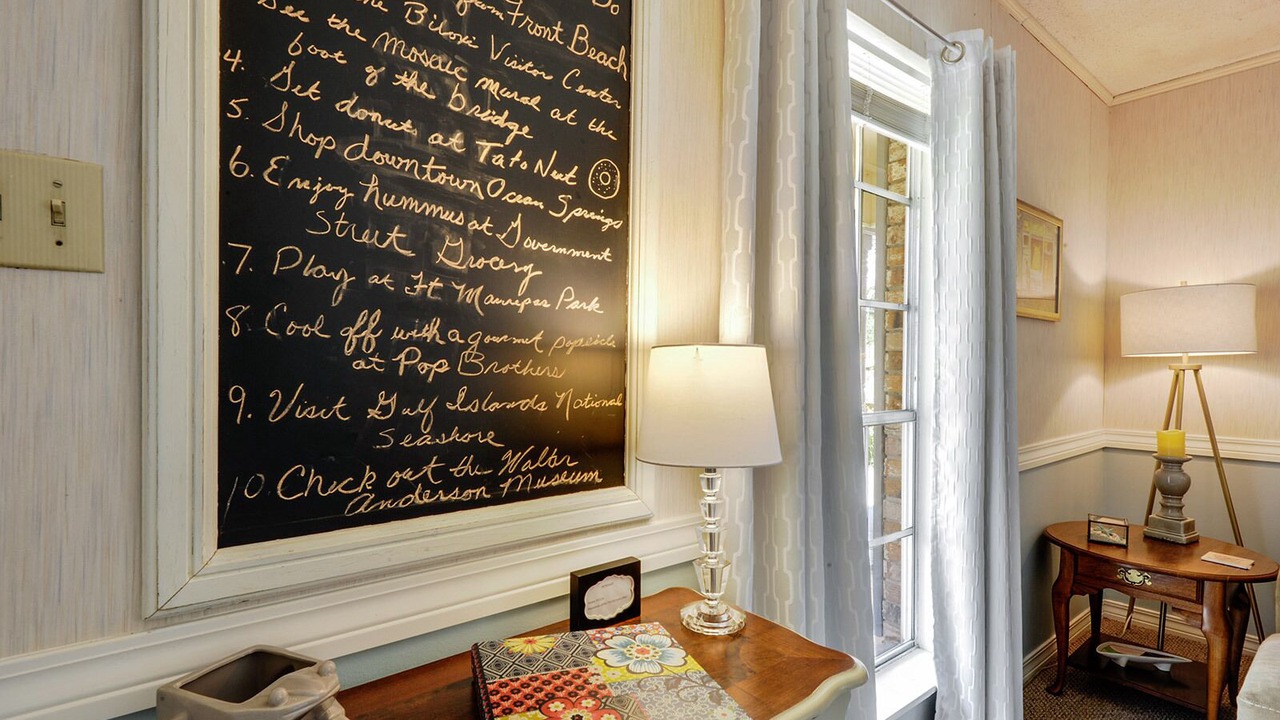 Do
from Front Beach
the Biloxi Visitor Center
See the mosaic mural at the
foot of the bridge
4. Get donuts at Tato Nut
5. Shop downtown Ocean Springs
6. Enjoy hummus at Government
Street Grocery
7. Play at Ft Maurepas Park
8 Cool off with a gourmet popsicle
at Pop Brothers
9. Visit Gulf Islands National
Seashore
10 Check out the Walter
Anderson Museum